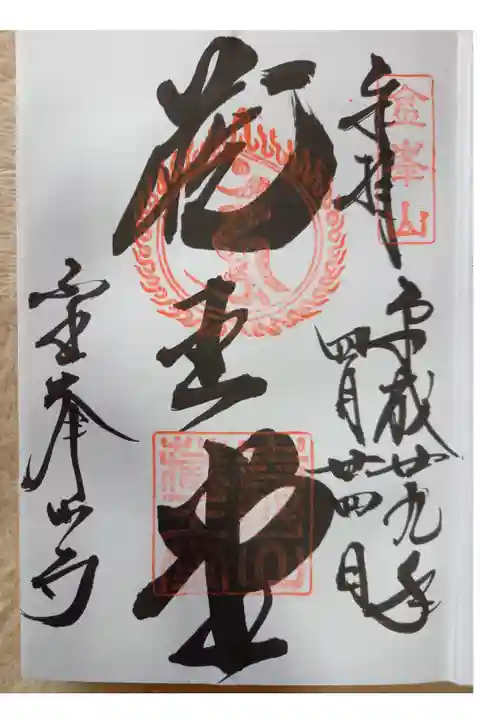 金峯山
奉拝
平成廿九年
四月廿四日
蔵王堂
金峯山寺